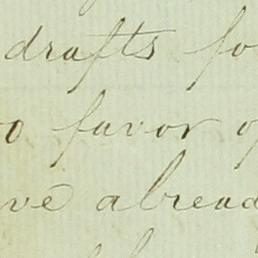 drafts fo
o favor of
ve alread